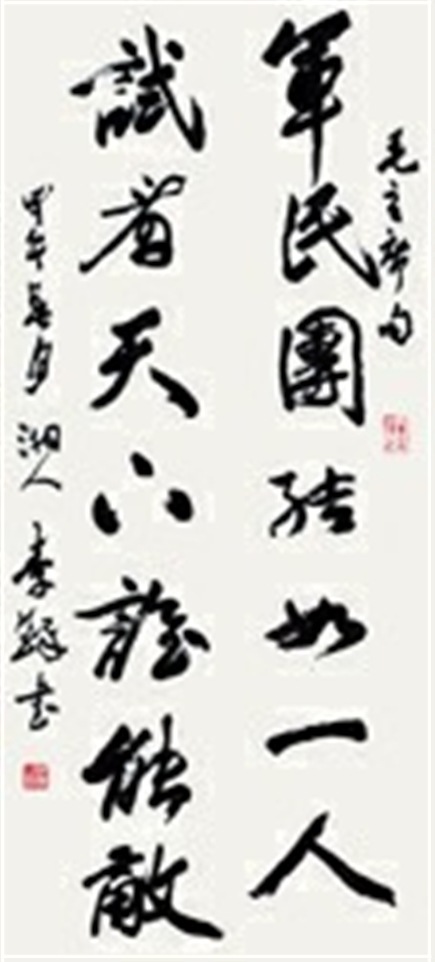 毛主席句
軍民團結如一人
試看天下誰能敵
甲午春月 人 李 书